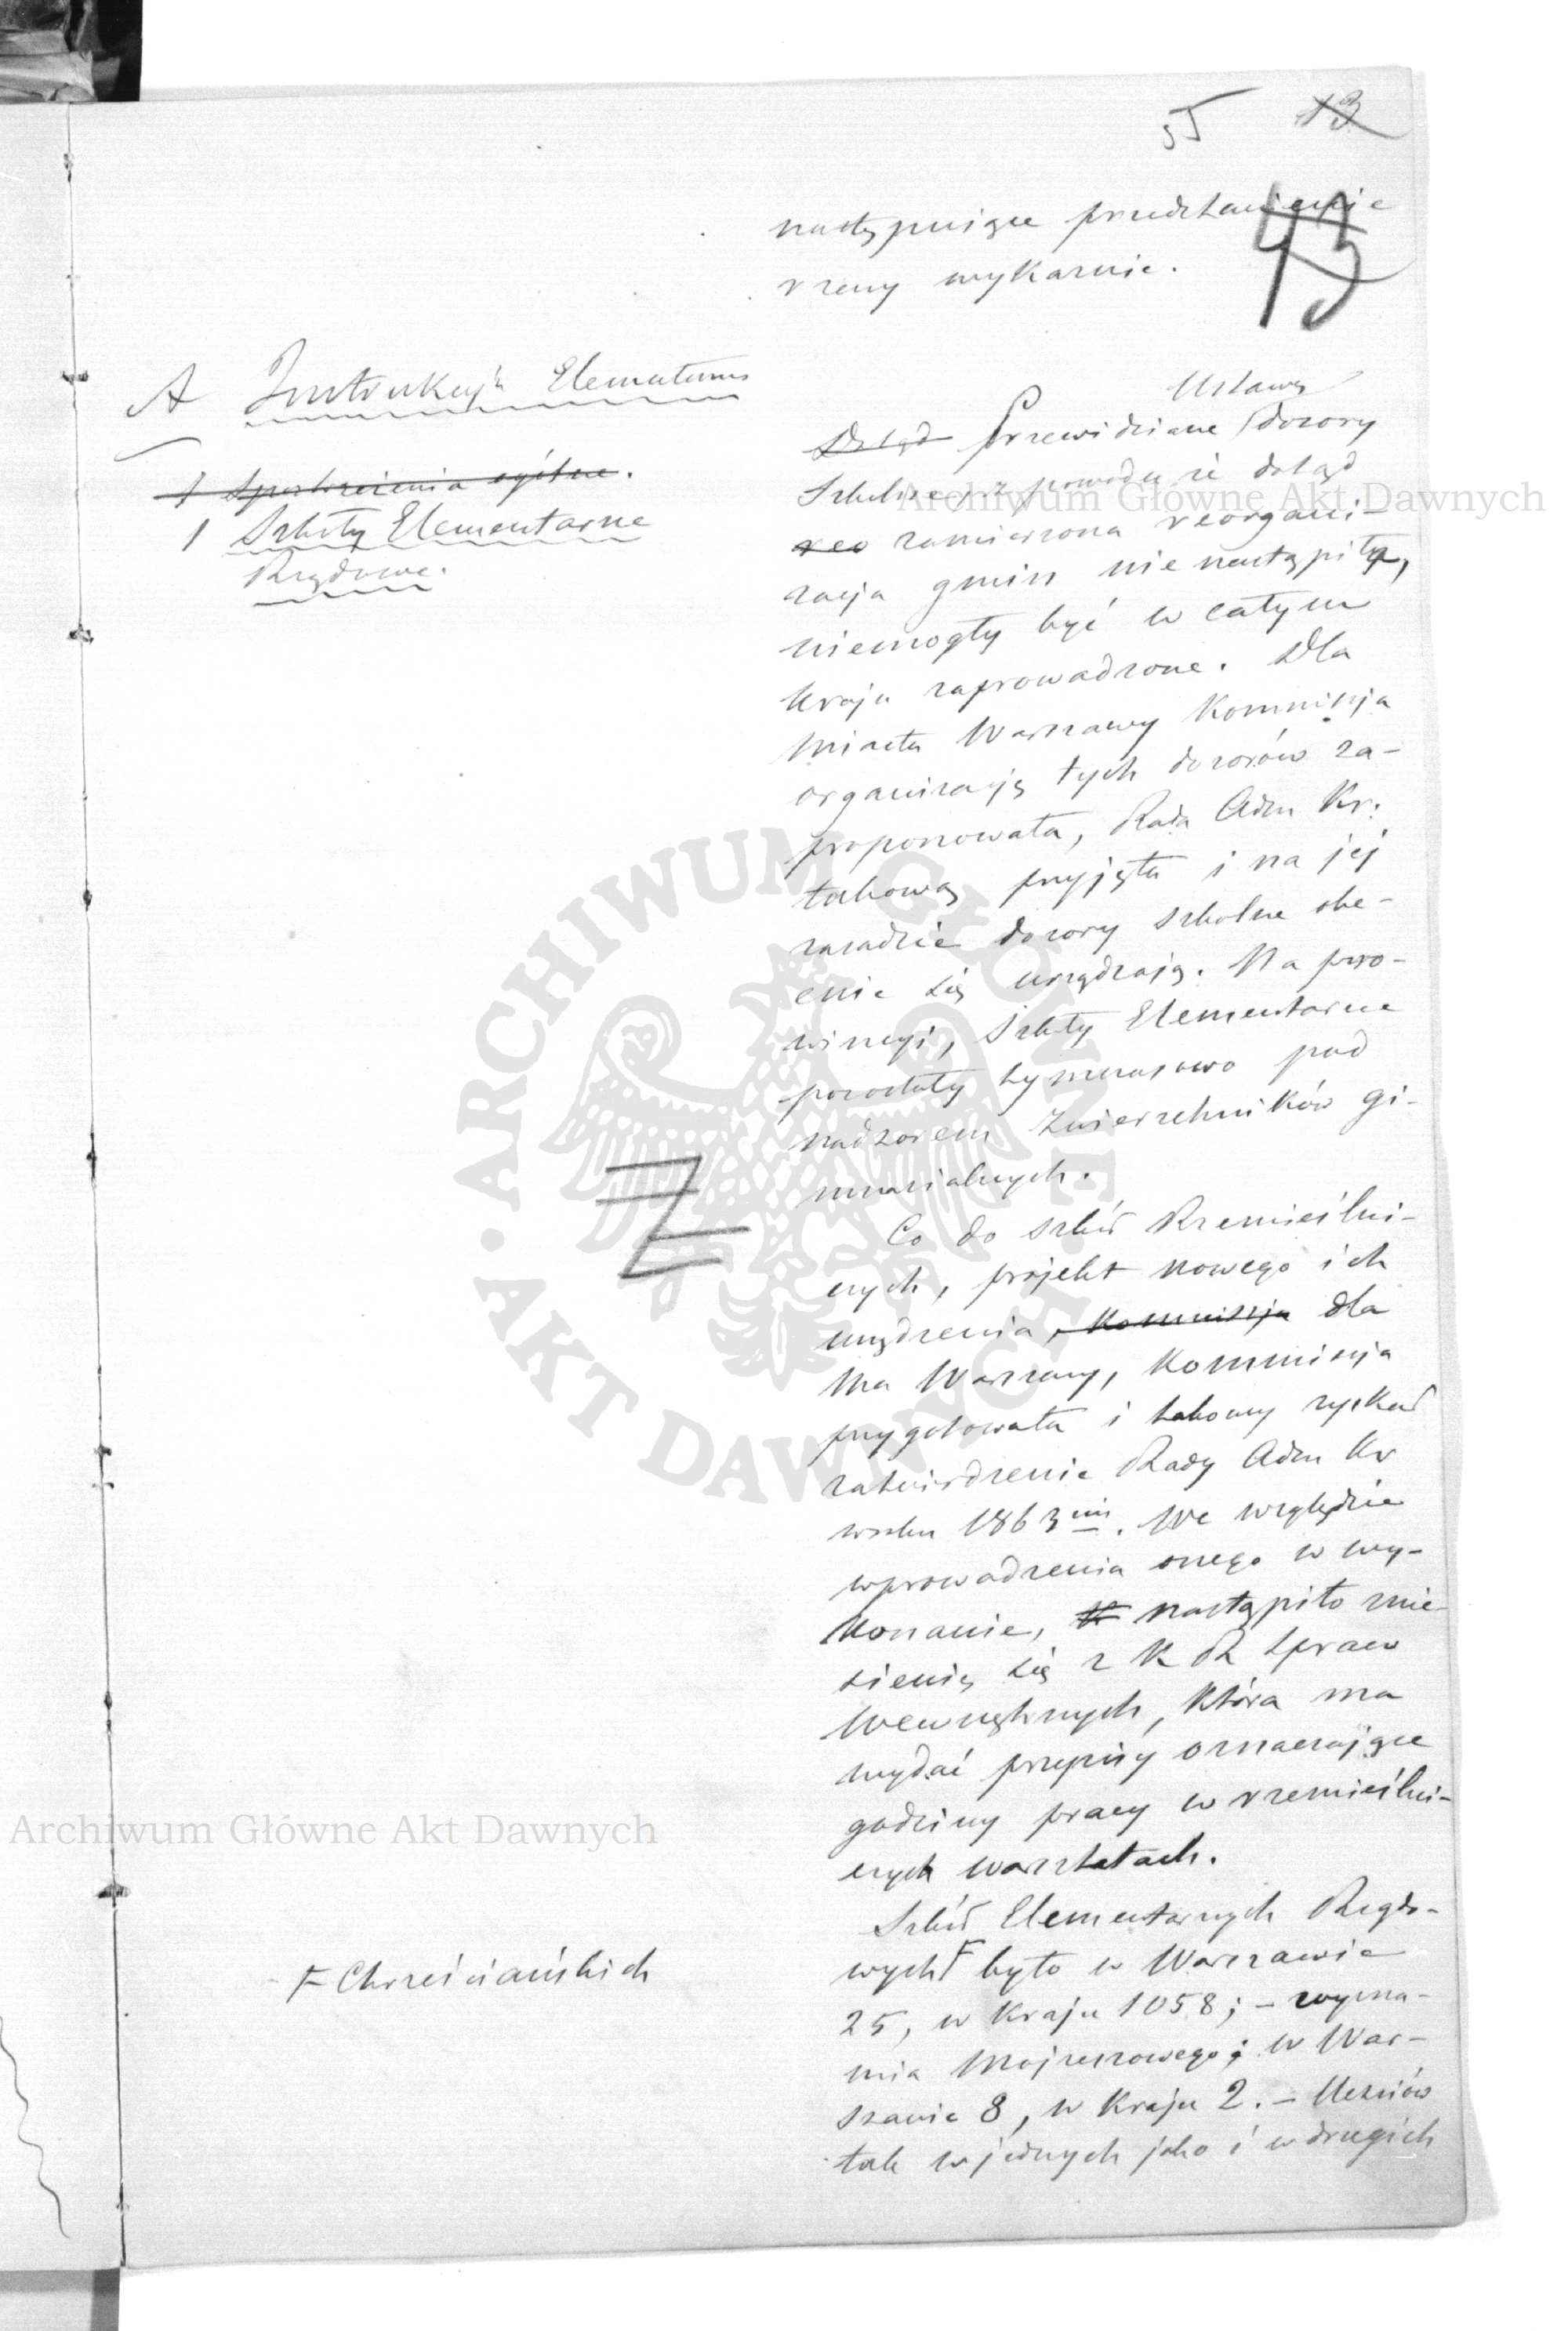 55 13
43
następujące przedstawienie
rzeczy wykaznie.
A Instrukcyja Elementarna
1 Spostrzeżenia ogólne.
1 Szkoły Elementarne
Rządowe.
Ustawą
Dotąd Przewidziane dozory
Szkolne, z powodu że dotąd
reo zamierzona reorgani-
zacja gmin nie nastąpiła,
niemogły być w całym
Kraju zaprowadzone. Dla
Miasta Warszawy Kommissja
organizacją tych dozorów za-
proponowała, Rada Adm Kr.
takową przyjęła i na jej
zasadzie dozory szkolne obe-
cnie się urządzają. Na pro-
wincyi, Szkoły Elementarne
pozostały tymczasowo pod
nadzorem Zwierzchników gi-
mnazialnych.
Co do szkół Rzemieślni-
czych, projekt nowego ich
urządzenia, Kommissja dla
Ma Warszawy, Kommissja
przygotowała i takowy zyskał
zatwierdzenie Rady Adm Kr
w roku 1863 im. We względzie
wprowadzenia onego w wy-
Konanie, nastąpiło znie-
sienie się z K R Spraw
Wewnętrznych, Która ma
wydać przepisy oznaczające
godziny pracy w rzemieślni-
czych warsztatach.
Szkół Elementarnych Rządo-
wych F było w Warszawie
F Chrześciańskich
25, w Kraju 1058; – wyzna-
nia Mojżeszowego; w War-
szawie 8, w Kraju 2. – Uczniów
tak w jednych jako i w drugich
Archiwum Główne Akt Dawnych
Archiwum Główne Akt Dawnych
ARCHIWUM GŁÓWNE • AKT DAWNYCH •